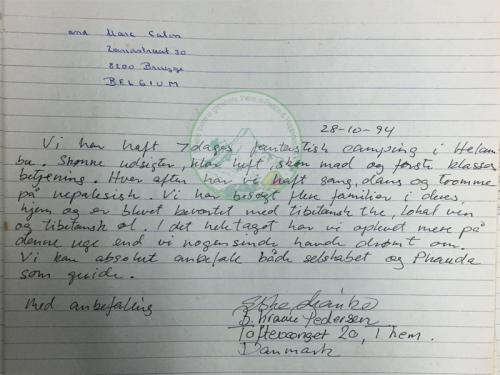 and Marc Calon
Zandstraat 30
8200 Brugge
BELGIUM
28-10-94
Vi har haft 7 dages fantastisk camping i Helam
bu. Skønne udsigter, klar luft, skøn mad og første klasses
betjening. Hver aften har vi haft sang, dans og tromme
på nepalesisk. Vi har besøgt flere familier i deres
hjem og er blevet bevartet med tibetansk the, lokal vin
og tibetansk øl. I det hele taget har vi oplevet mere på
denne uge end vi nogensinde havde drømt om.
Vi kan absolut anbefale både selskabet og
som guide.
Med anbefaling
Pedersen
20, Them.
Danmark